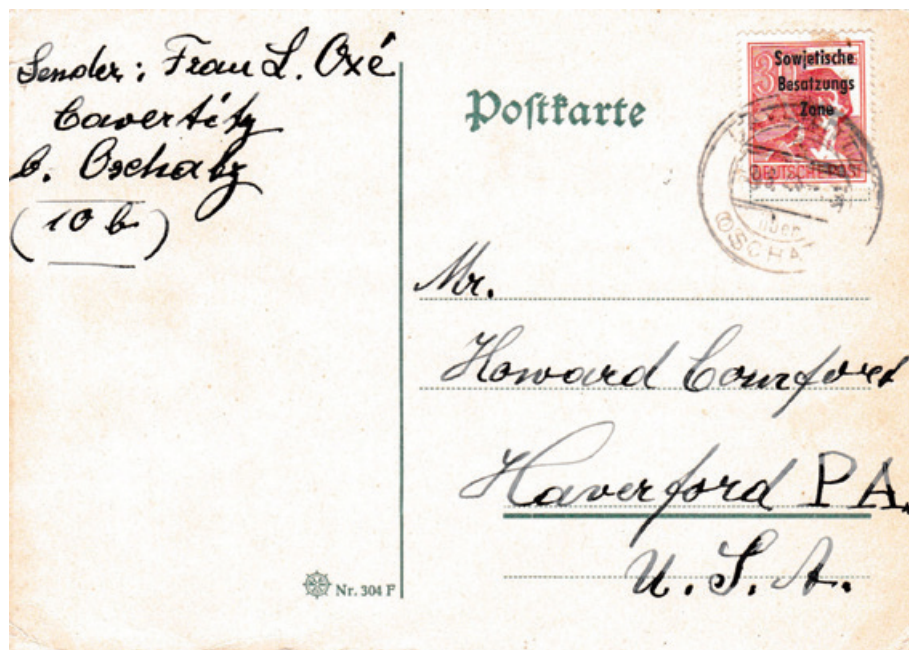 Sender: Frau L. Oxé
Cavertitz
b. Oschatz
(10 b)
Poſtkarte
30
Sowjetische
Besatzungs
Zone
DEUTSCHE POST
über
OSCHA
Mr.
Howard Comfort
Haverford PA.
U. S. A.
Nr. 304 F